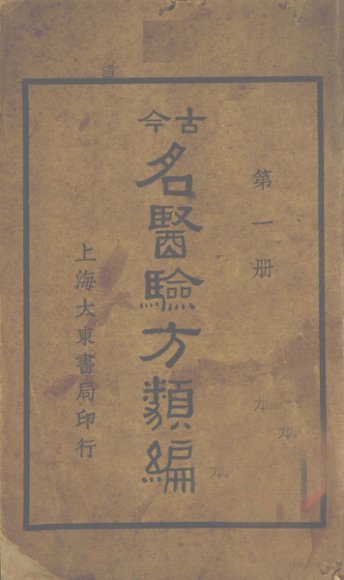 第一册
古今
名醫驗方類編
上海大東書局印行